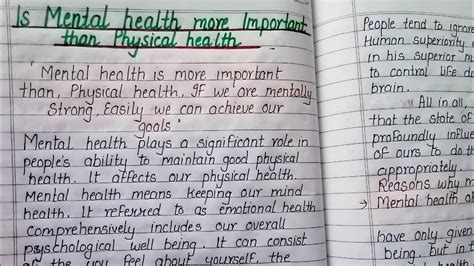 Is Mental health more Important
than Physical health
"Mental health is more important
than, Physical health, IF we are mentally
Strong, Easily we can achieve our
goals"
Mental health plays a significant role in
people's ability to maintain good physical
health. It affects our physical health.
Mental health means keeping our mind
health. It referred to as emotional health
Comprehensively includes our overall
psychological well being. It can consist
of the you feel about yourself, the
People tend to ignore
Human superiority
in his superior
to control life
brain.
All in all,
that the state of
profoundly influe
of ours to do th
appropriately.
Reasons why m
→ Mental health a
have only given
being. but in t